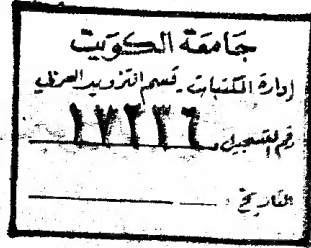 جامعة الكويت
إدارة المكتبات - قسم التزويد العربي
رقم التسجيل ١٧٢٣٦
التاريخ